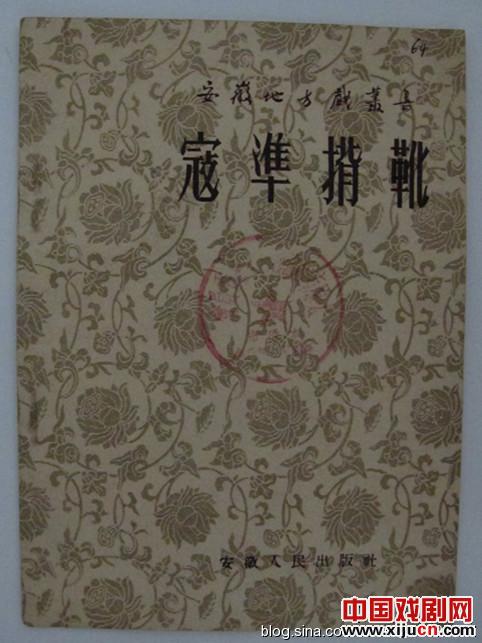 64
安徽地方戲叢書
寇準揹靴
安徽人民出版社
中国戏剧网
www.xijucn.com
blog.sina.com